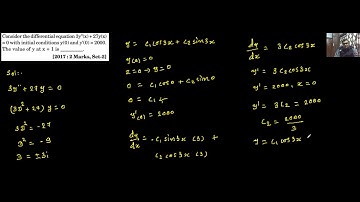 Consider the differential equation 3y"(x) + 27y(x)
= 0 with initial conditions y(0) = 0 and y'(0) = 2000.
The value of y at x = 1 is ________.
[2017 : 2 Marks, Set-2]
Sol:-
3y'' + 27y = 0
(3D² + 27) y = 0
3D² = -27
D² = -9
D = ±3i
y = c₁ cos3x + c₂ sin3x
y(0) = 0
x = 0 → y = 0
0 = c₁ cos0 + c₂ sin0
0 = c₁
y'(0) = 2000
dy/dx = -c₁ sin3x (3) +
c₂ cos3x (3)
dy/dx = 3 c₂ cos3x
y' = 3 c₂ cos3x
y' = 2000, x = 0
y' = 3c₂ = 2000
c₂ = 2000/3
y = c₁ cos3x